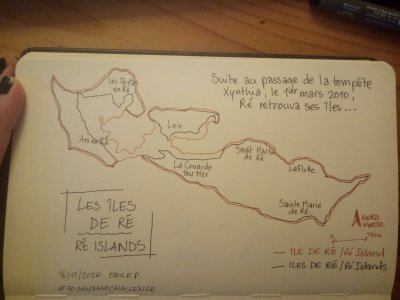 Suite au passage de la tempête
Xynthia, le 1er mars 2010,
Ré retrouva ses îles...
Les Portes
en Ré
Loix
Ars en Ré
La Couarde
sur Mer
Saint Martin
de Ré
La Flotte
Sainte Marie
de Ré
LES ÎLES
DE RÉ
RÉ ISLANDS
NORD
NORTH
1km
ILE DE RÉ / Ré Island
ILES DE RÉ / Ré Islands
16/11/2020
#30DAYMAPCHALLENGE